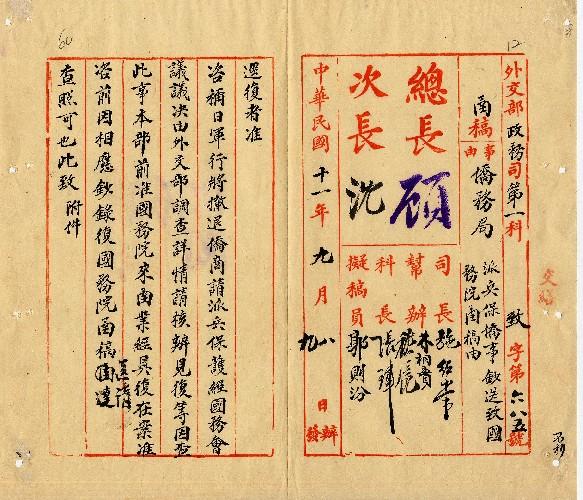 12
外交部政務司第一科 致字第六八五號
函稿
事由
僑務局
派兵保僑事鈔送致國
務院函稿由
總長 顧
次長 沈
司長 施紹常
幫辦 朱鶴翔
科長
擬稿員 郭則汾
中華民國十一年九月八日辦
九 發
60
逕復者准
咨稱日軍行將撤退僑商請派兵保護經國務會
議議決由外交部調查詳情請核辦見復等因查
此事本部前准國務院來函業經具復在案准
咨前因相應鈔錄復國務院函稿函達
查照可也此致 附件